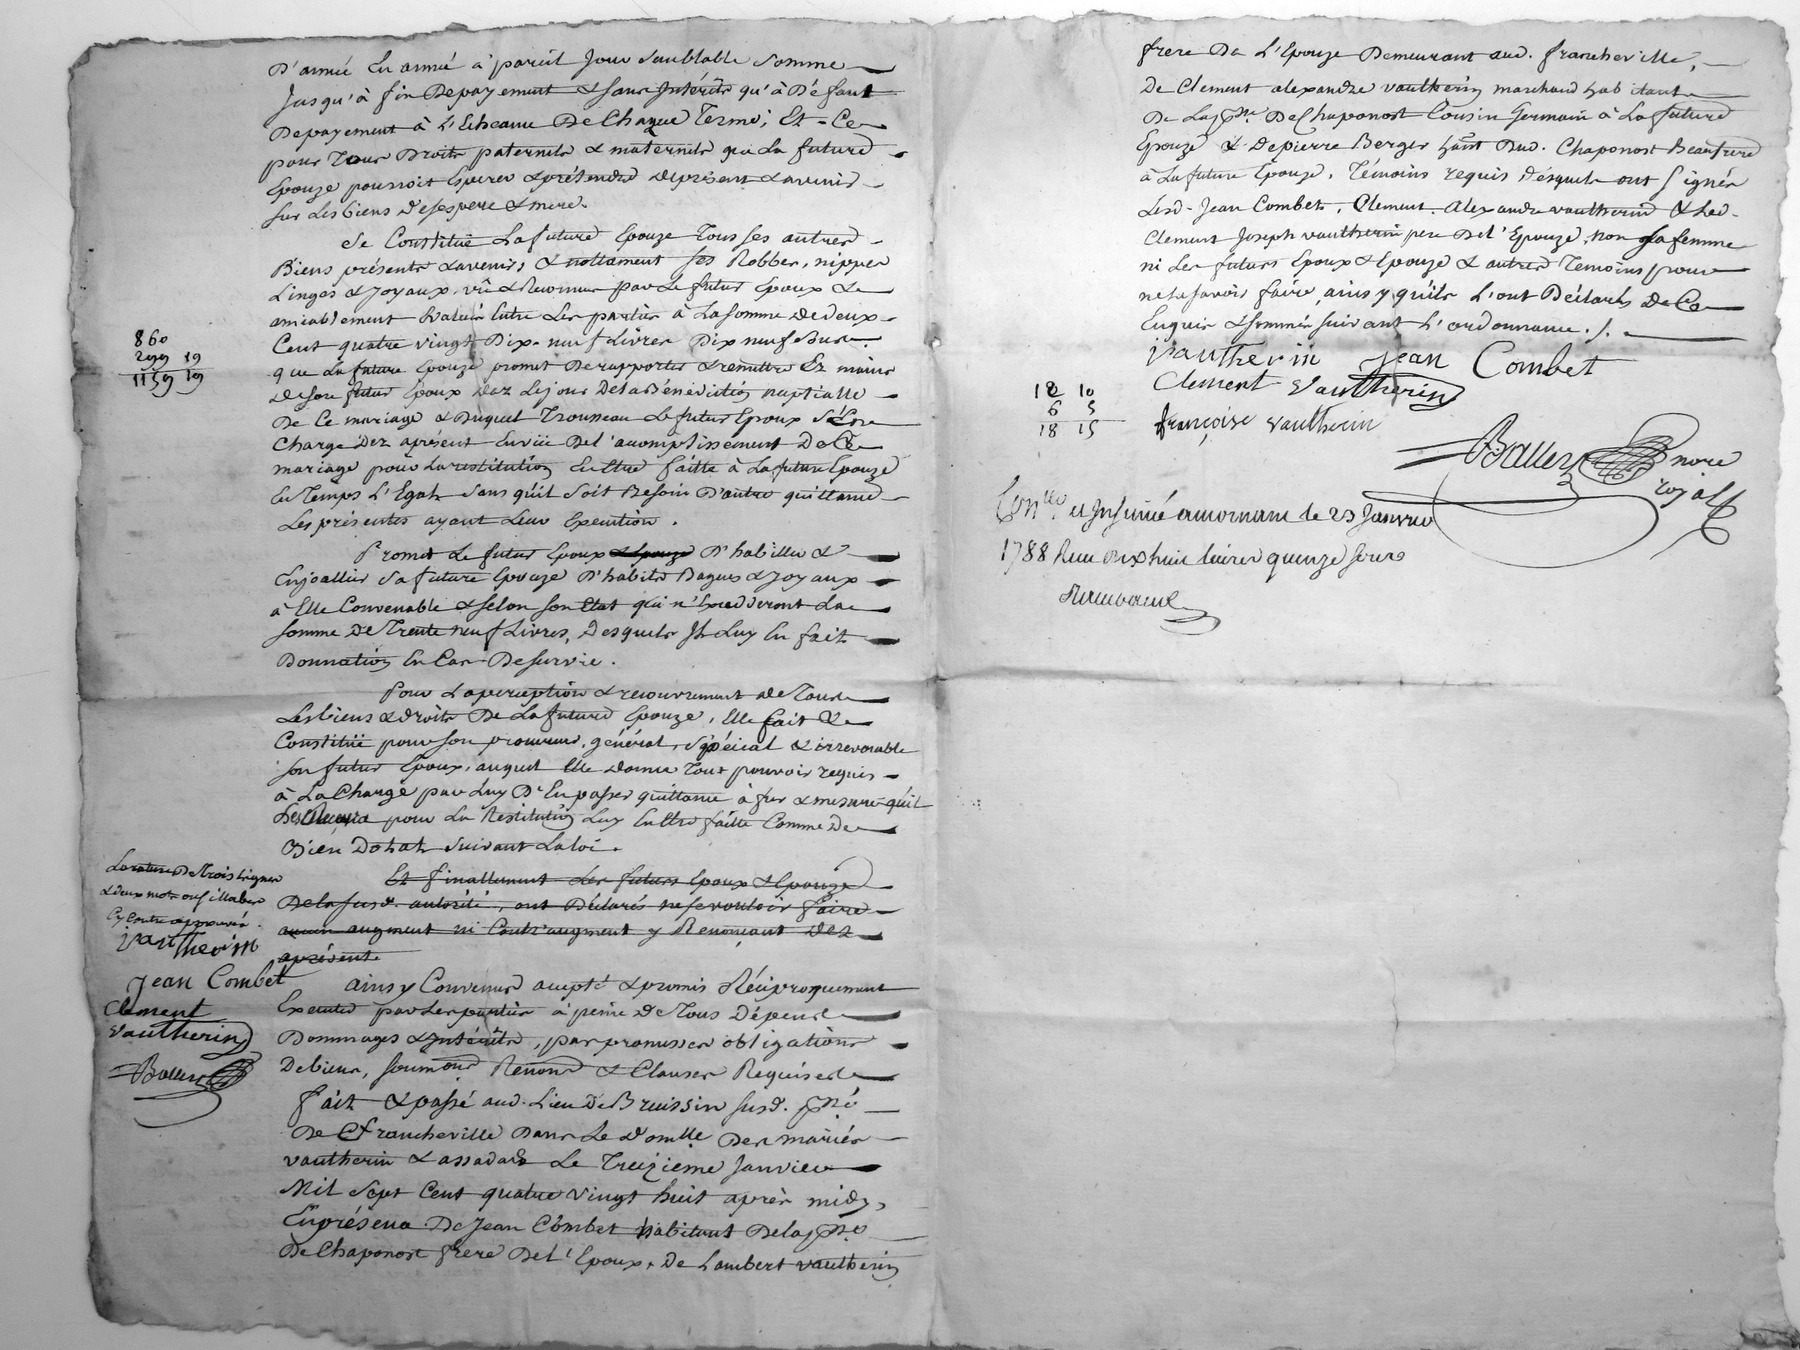 D'année En année a pareil Jour Semblable Somme
Jusqu'à fin De payement & sans Intérêts qu'à Défaut
De payement à L'Echeance De Chaque Terme; Et Ce
pour Tous Droits paternels & maternels que La future
Epouze pourroit Esperer & prétendre de présent & avenir
sur Les biens de ses pere & mere.
Se Constitüe La future Epouze Tous ses autres
Biens présents & avenirs & nottament ses Robbes, nippes
Linges & Joyaux, vû & Reconnus par Le futur Epoux &
amiablement Evalués Entre Les parties à La somme de deux
Cent quatre vingt Dix-neuf Livres Dix neuf Sus
que La future Epouze promet De rapporter & remettre Ez mains
de Son futur Epoux Dez Le jour De La Bénédiction nuptialle
De Ce mariage & Duquel Trousseau Le futur Epoux S'est
Chargé Dez apresent En vüe De L'acomplissement De Ce
mariage pour La restitution En Etre faitte à La future Epouze
En Temps & Egats sans qu'il soit Besoin D'autre quittance
Les présentes ayant Leur Execution.
Promet Le futur Epoux & Epouze D'habiller &
Enjoaller Sa future Epouze D'habits Bagues & Joyaux
à Elle Convenable & selon son Etat qui n'Excedderont La
somme De Trente neuf Livres, Desquels Il Luy En fait
Donnation En Cas De survie.
Pour La perception & recouvrement de Tous
Les biens & droits De La future Epouze, Elle fait &
Constitüe pour son procureur, général, Spécial & irrevocable
son futur Epoux, auquel Elle donne Tout pouvoir requis
à La Charge par Luy D'En passer quittance à fur & mesure qu'il
Les Recevra pour La Restitution Luy En Etre faitte Comme De
Bien Dotal suivant La Loi.
Et finallement Les futurs Epoux & Epouze
De La susd. autorité, ont Déclarés ne se vouloir faire
aucun augment ni Contr'augment y Renonçant Dez
apresent
ainsy Convenus accepté & promis Réciproquement
Executer par Les parties à peine De Tous Dépens
Dommages & Intérêts, par promesses obligations
De biens, soumons Renons & Clauses Requises
fait & passé aud. Lieu De Bruissin susd. psse
De Francheville Dans Le domlle Des mariés
vautherin & assada Le Treizieme Janvier
Mil sept Cent quatre vingt huit après midy,
En présence De Jean Combet habitant De La psse
De Chaponost frere De L'Epoux, De Lambert vautherin
860
299 19
1159 19
La rature De Trois Lignes
& deux mots ou sillabes
Cy Contre approuvée
Vautherin
Jean Combet
Clement
Vautherin
Baller
frere De L'Epouze Demeurant aud. francheville,
De Clement alexandre vautherin marchand habitant
De La psse De Chaponost Cousin Germain à La future
Epouze & De pierre Berger habt Dud. Chaponost Beaufrere
à La future Epouze, Témoins requis, desquels ont signés
Lesd. Jean Combet, Clement Alexandre vautherin & Led.
Clement Joseph vautherin pere De L'Epouze, non sa femme
ni Les futurs Epoux & Epouze & autres Temoins pour
ne La savoir faire, ainsy qu'ils L'ont Déclarés De Ce
Enquis & sommés suivant L'ordonnance./.
Vautherin Jean Combet
Clement Vautherin
françoise vautherin
12 10
6 5
18 15
Baller nore
royal
Conllé et Insinué a mornant le 23 Janvier
1788 Recu dix huit livres quinze sous